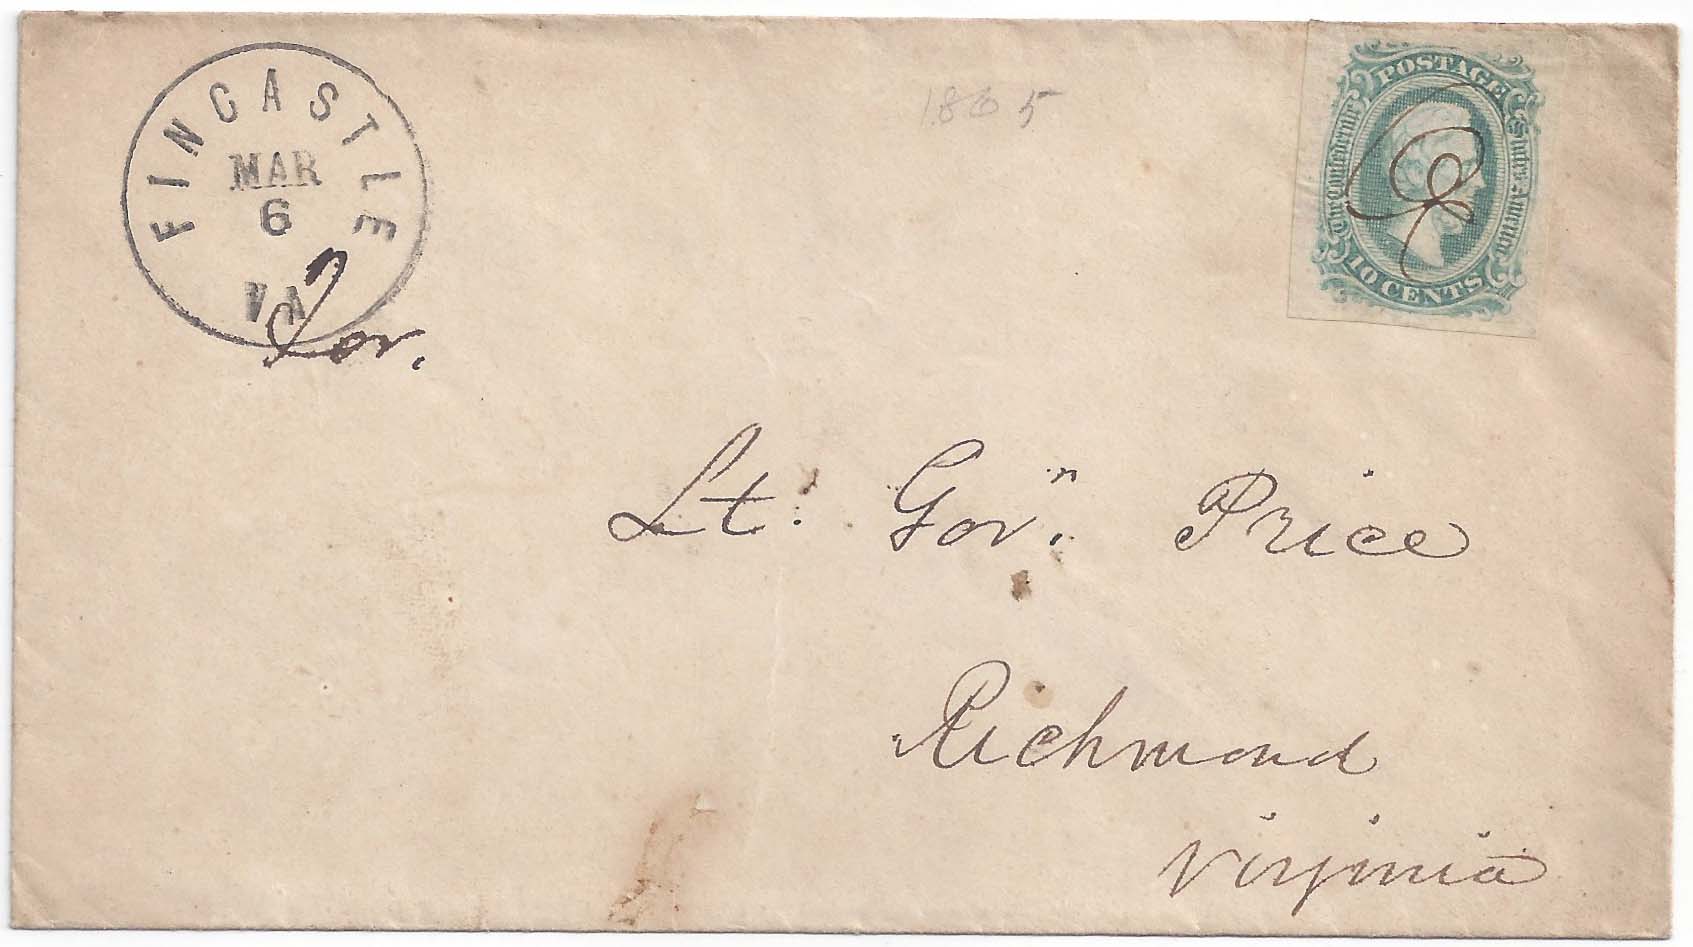 FINCASTLE
MAR
6
VA
1865
POSTAGE
The Confederate States America
10 CENTS
Lt. Govn. Price
Richmond
Virginia